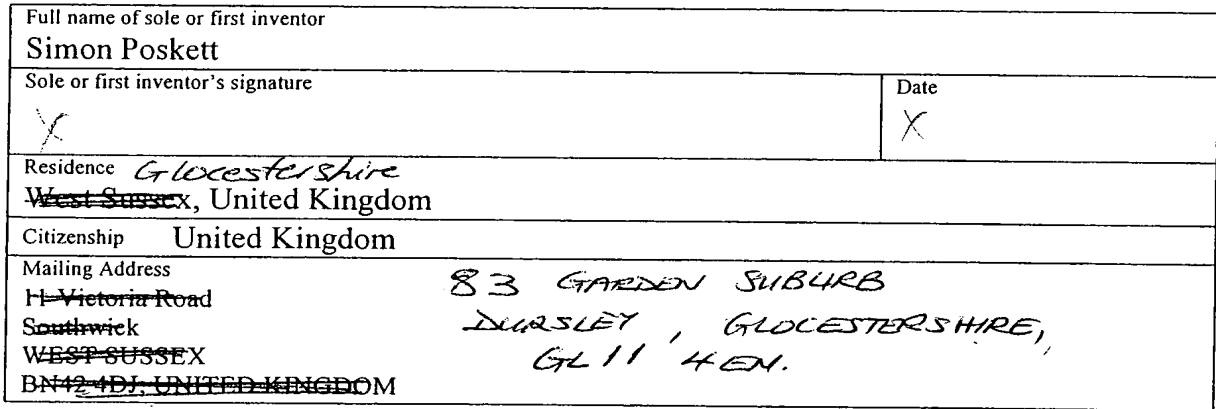 Full name of sole or first inventor
Simon Poskett
Sole or first inventor's signature
Date
X
X
Residence Glocestershire
West Sussex, United Kingdom
Citizenship United Kingdom
Mailing Address
11 Victoria Road
Southwick
WEST SUSSEX
BN42 4DJ, UNITED KINGDOM
83 GARDEN SUBURB
DURSLEY, GLOCESTERSHIRE,
GL11 4EN.